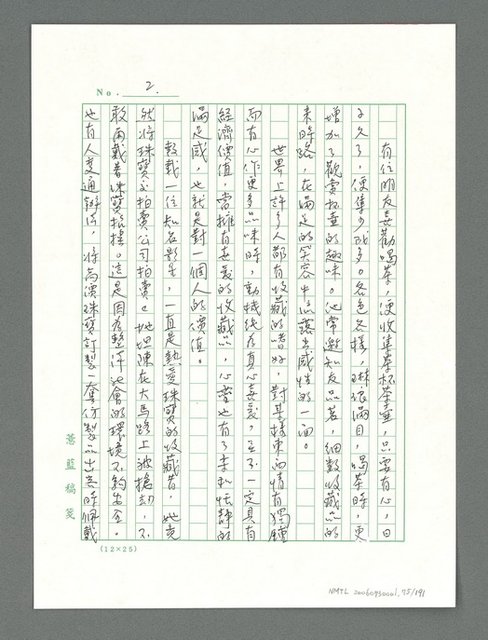 No. 2.
有位朋友喜歡喝茶,便收集茶杯茶壺,只要有心,日
子久了,便集少成多。各色各樣,琳琅滿目,喝茶時,更
增加了觀賞杯壺的趣味。他常邀知友品茗,細數收藏品的
來時路,在滿足的笑容中流露出感性的一面。
世界上許多人都有收藏的嗜好,對某樣東西情有獨鍾
而有心作更多品味時,動機純存真心喜愛,並不一定具有
經濟價值,當擁有喜愛的收藏品,心靈也有了柔和恬靜的
滿足感,也就是對一個人的價值。
報載一位知名影星,一直是熱愛珠寶的收藏者,她竟
然將珠寶交拍賣公司拍賣。她坦陳在大馬路上被搶劫,不
敢再戴著珠寶招搖。這是因為整個社會的環境不夠安全。
也有人變通辦法,將高價珠寶訂製一套仿製品出去時佩戴
(12×25)
菩藍稿箋
NMTL 20060930001, 75/191